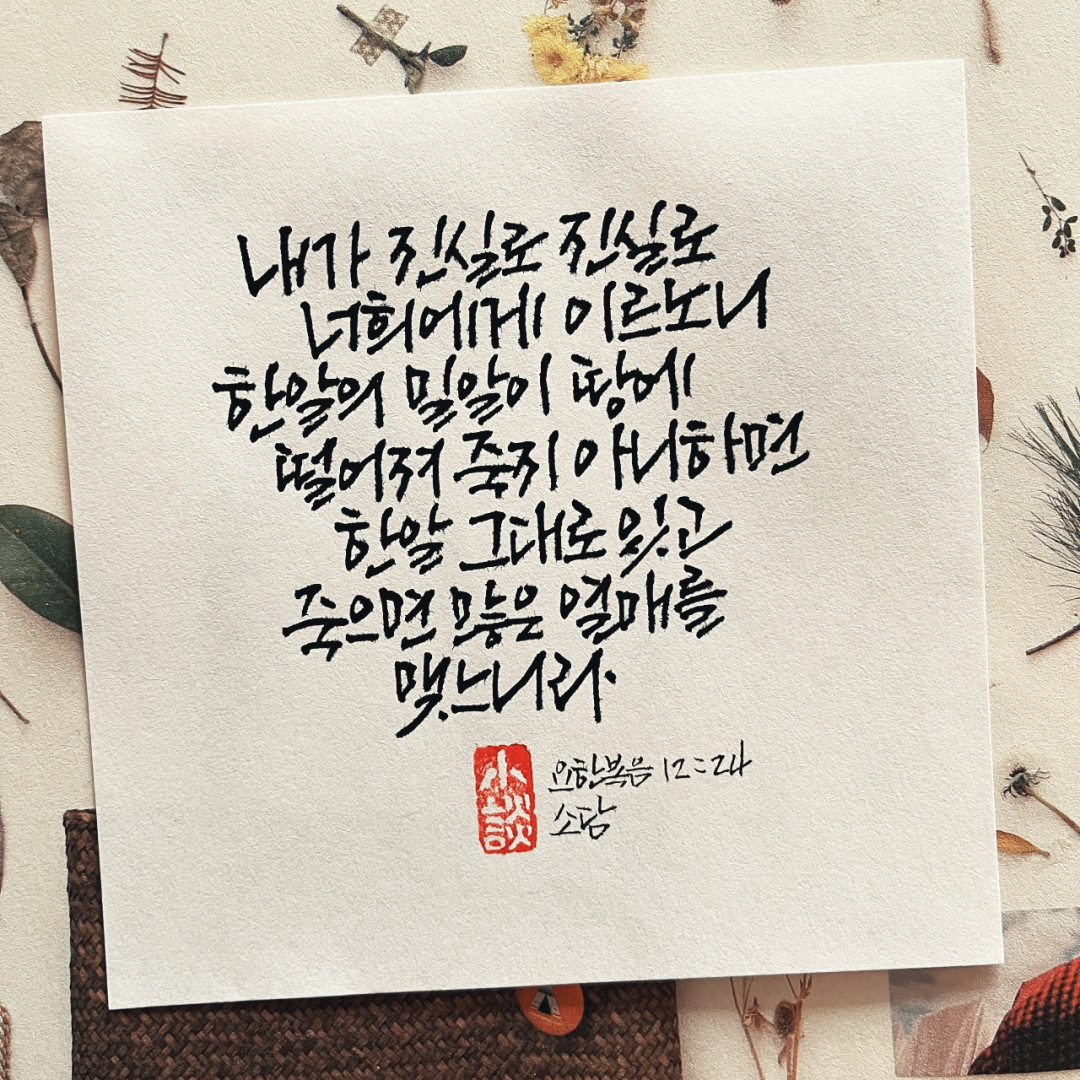 내가 진실로 진실로
너희에게 이르노니
한알의 밀알이 땅에
떨어져 죽지 아니하면
한알 그대로 있고
죽으면 많은 열매를
맺느니라.
小談
요한복음 12:24
소담